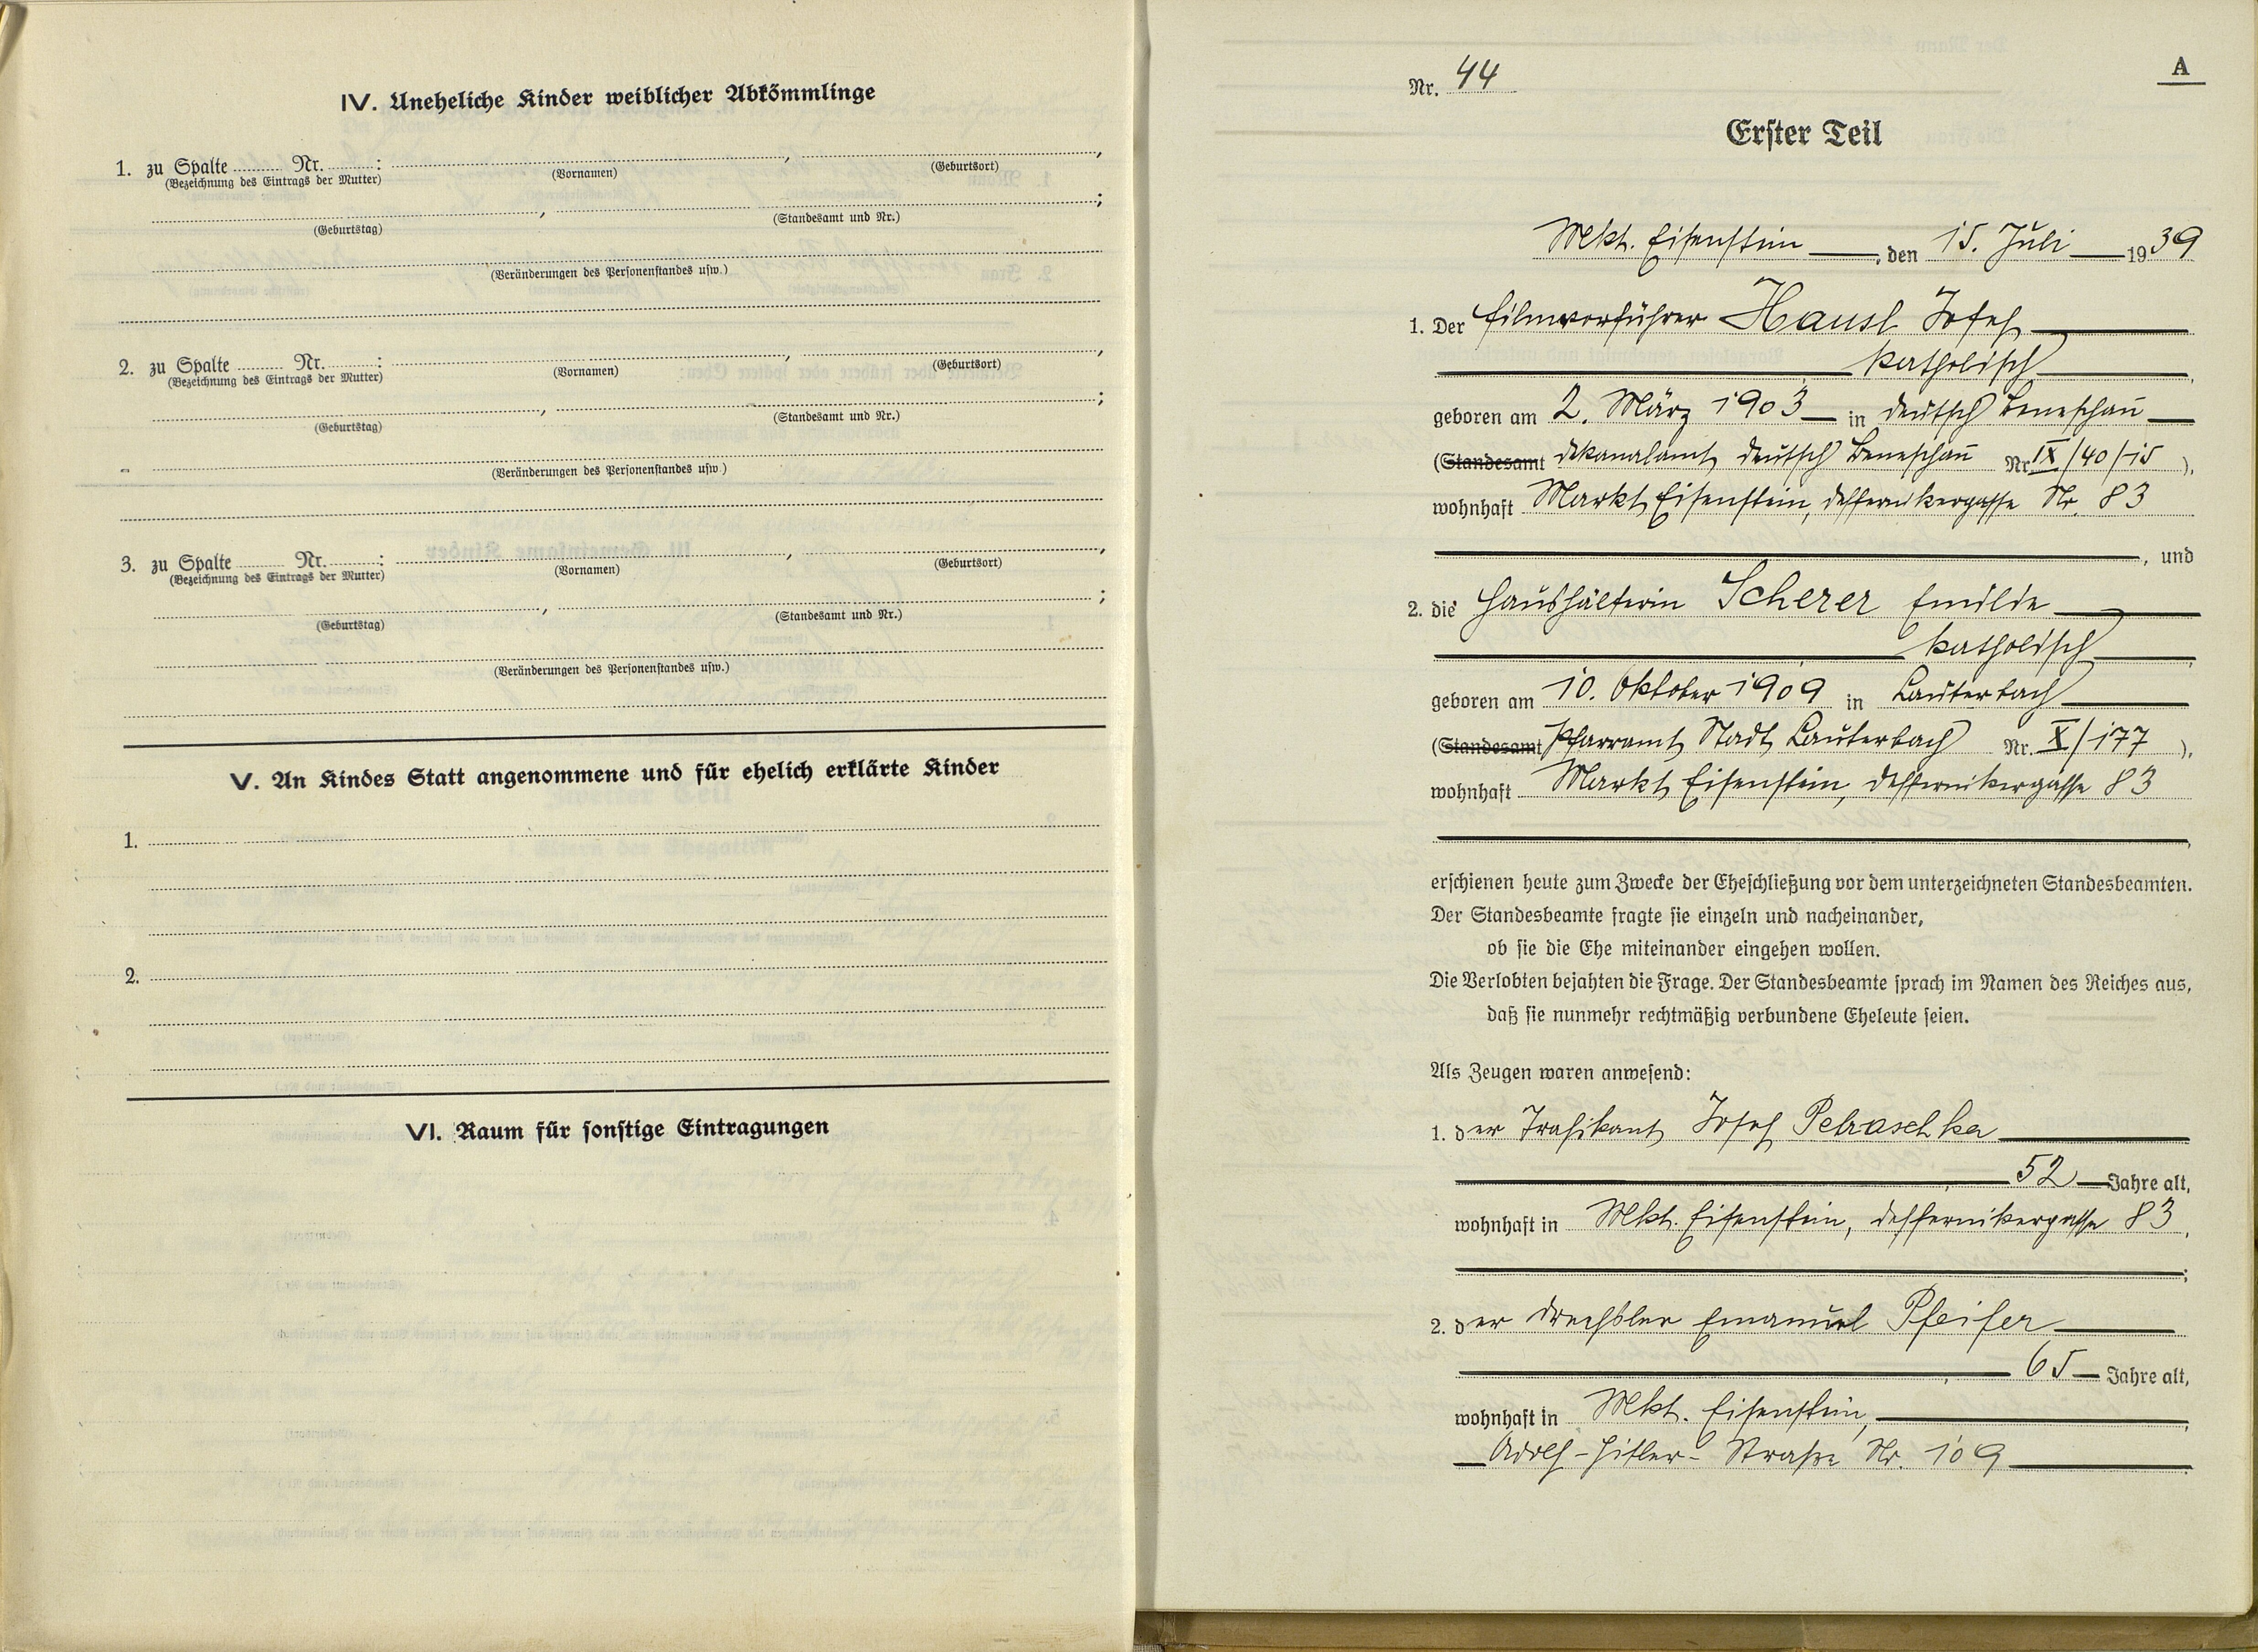 IV. Uneheliche Kinder weiblicher Abkömmlinge
1. zu Spalte ........ Nr. ........: ........, ........,
(Bezeichnung des Eintrags der Mutter) (Vornamen) (Geburtsort)
........, ........;
(Geburtstag) (Standesamt und Nr.)
(Veränderungen des Personenstandes usw.)
2. zu Spalte ........ Nr. ........: ........, ........,
(Bezeichnung des Eintrags der Mutter) (Vornamen) (Geburtsort)
........, ........;
(Geburtstag) (Standesamt und Nr.)
(Veränderungen des Personenstandes usw.)
3. zu Spalte ........ Nr. ........: ........, ........,
(Bezeichnung des Eintrags der Mutter) (Vornamen) (Geburtsort)
........, ........;
(Geburtstag) (Standesamt und Nr.)
(Veränderungen des Personenstandes usw.)
V. An Kindes Statt angenommene und für ehelich erklärte Kinder
1.
2.
VI. Raum für sonstige Eintragungen
A
Nr. 44
Erster Teil
Mkt. Eisenstein, den 15. Juli 1939
1. Der Filmvorführer Hausl Josef
katholisch,
geboren am 2. März 1903 in Deutsch Beneschau
(Standesamt Dekanalamt Deutsch Beneschau Nr. IX/40/15),
wohnhaft Markt Eisenstein, Deffernikergasse Nr. 83
, und
2. die Haushälterin Scherer Emilie
katholisch,
geboren am 10. Oktober 1909 in Lauterbach
(Standesamt Pfarramt Stadt Lauterbach Nr. X/177),
wohnhaft Markt Eisenstein, Deffernikergasse 83
,
erschienen heute zum Zwecke der Eheschließung vor dem unterzeichneten Standesbeamten.
Der Standesbeamte fragte sie einzeln und nacheinander,
ob sie die Ehe miteinander eingehen wollen.
Die Verlobten bejahten die Frage. Der Standesbeamte sprach im Namen des Reiches aus,
daß sie nunmehr rechtmäßig verbundene Eheleute seien.
Als Zeugen waren anwesend:
1. der Trafikant Josef Petraschka
, 52 Jahre alt,
wohnhaft in Mkt. Eisenstein, Deffernikergasse 83,
;
2. der Drechsler Emanuel Pfeifer
, 65 Jahre alt,
wohnhaft in Mkt. Eisenstein,
Adolf-Hitler-Straße Nr. 109.